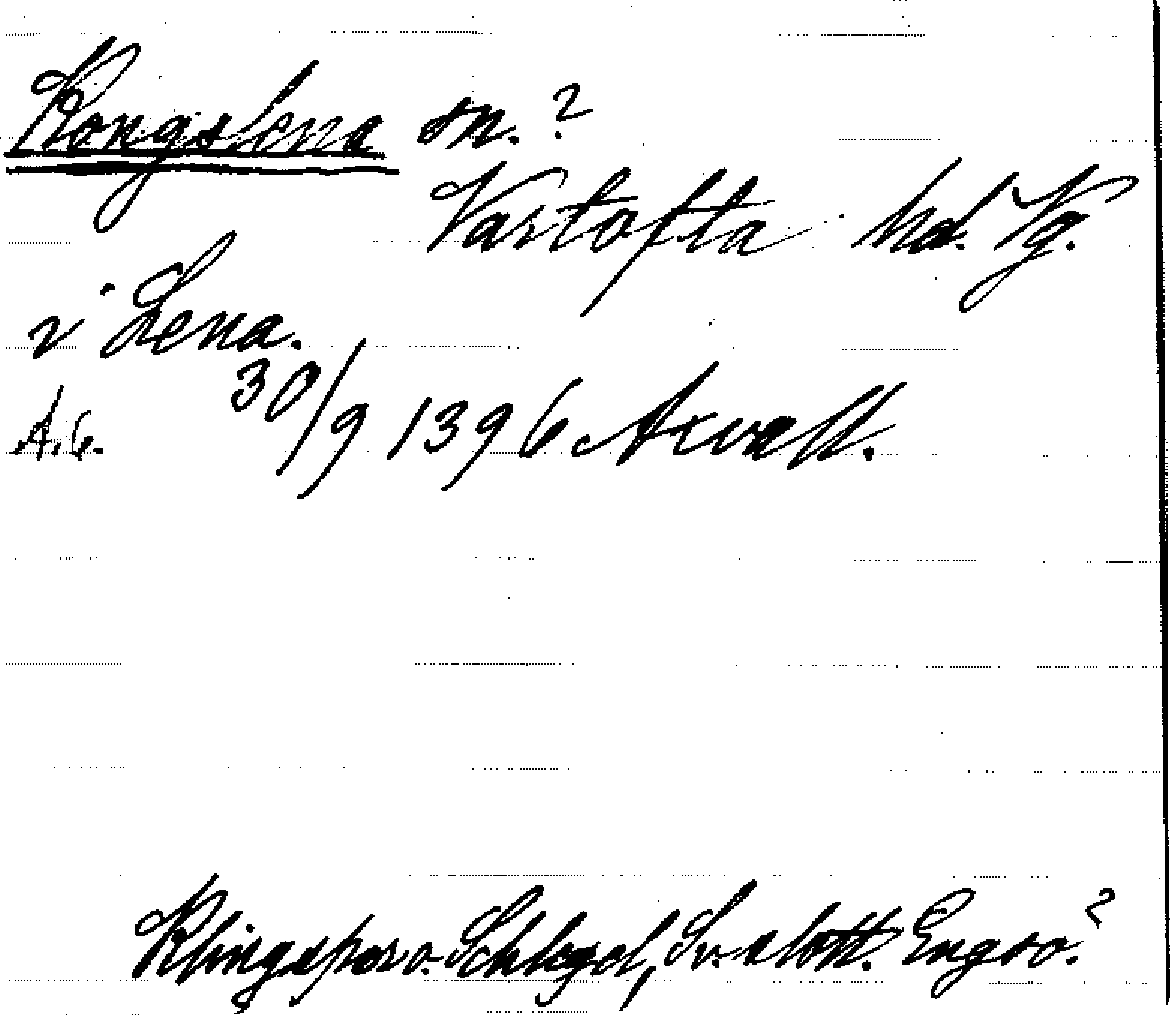 Kongslena sn.?
Vartofta hd. Vg.
i Lena.
A.6. 30/9 1396 Axvall.
Klingspor o. Schlegel, Sv. slott. Engsö.?